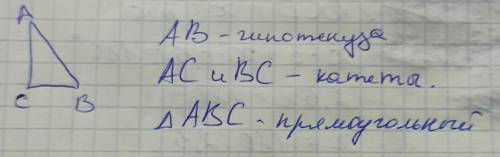 A
C B
AB - гипотенуза
AC и BC - катеты.
△ ABC - прямоугольный